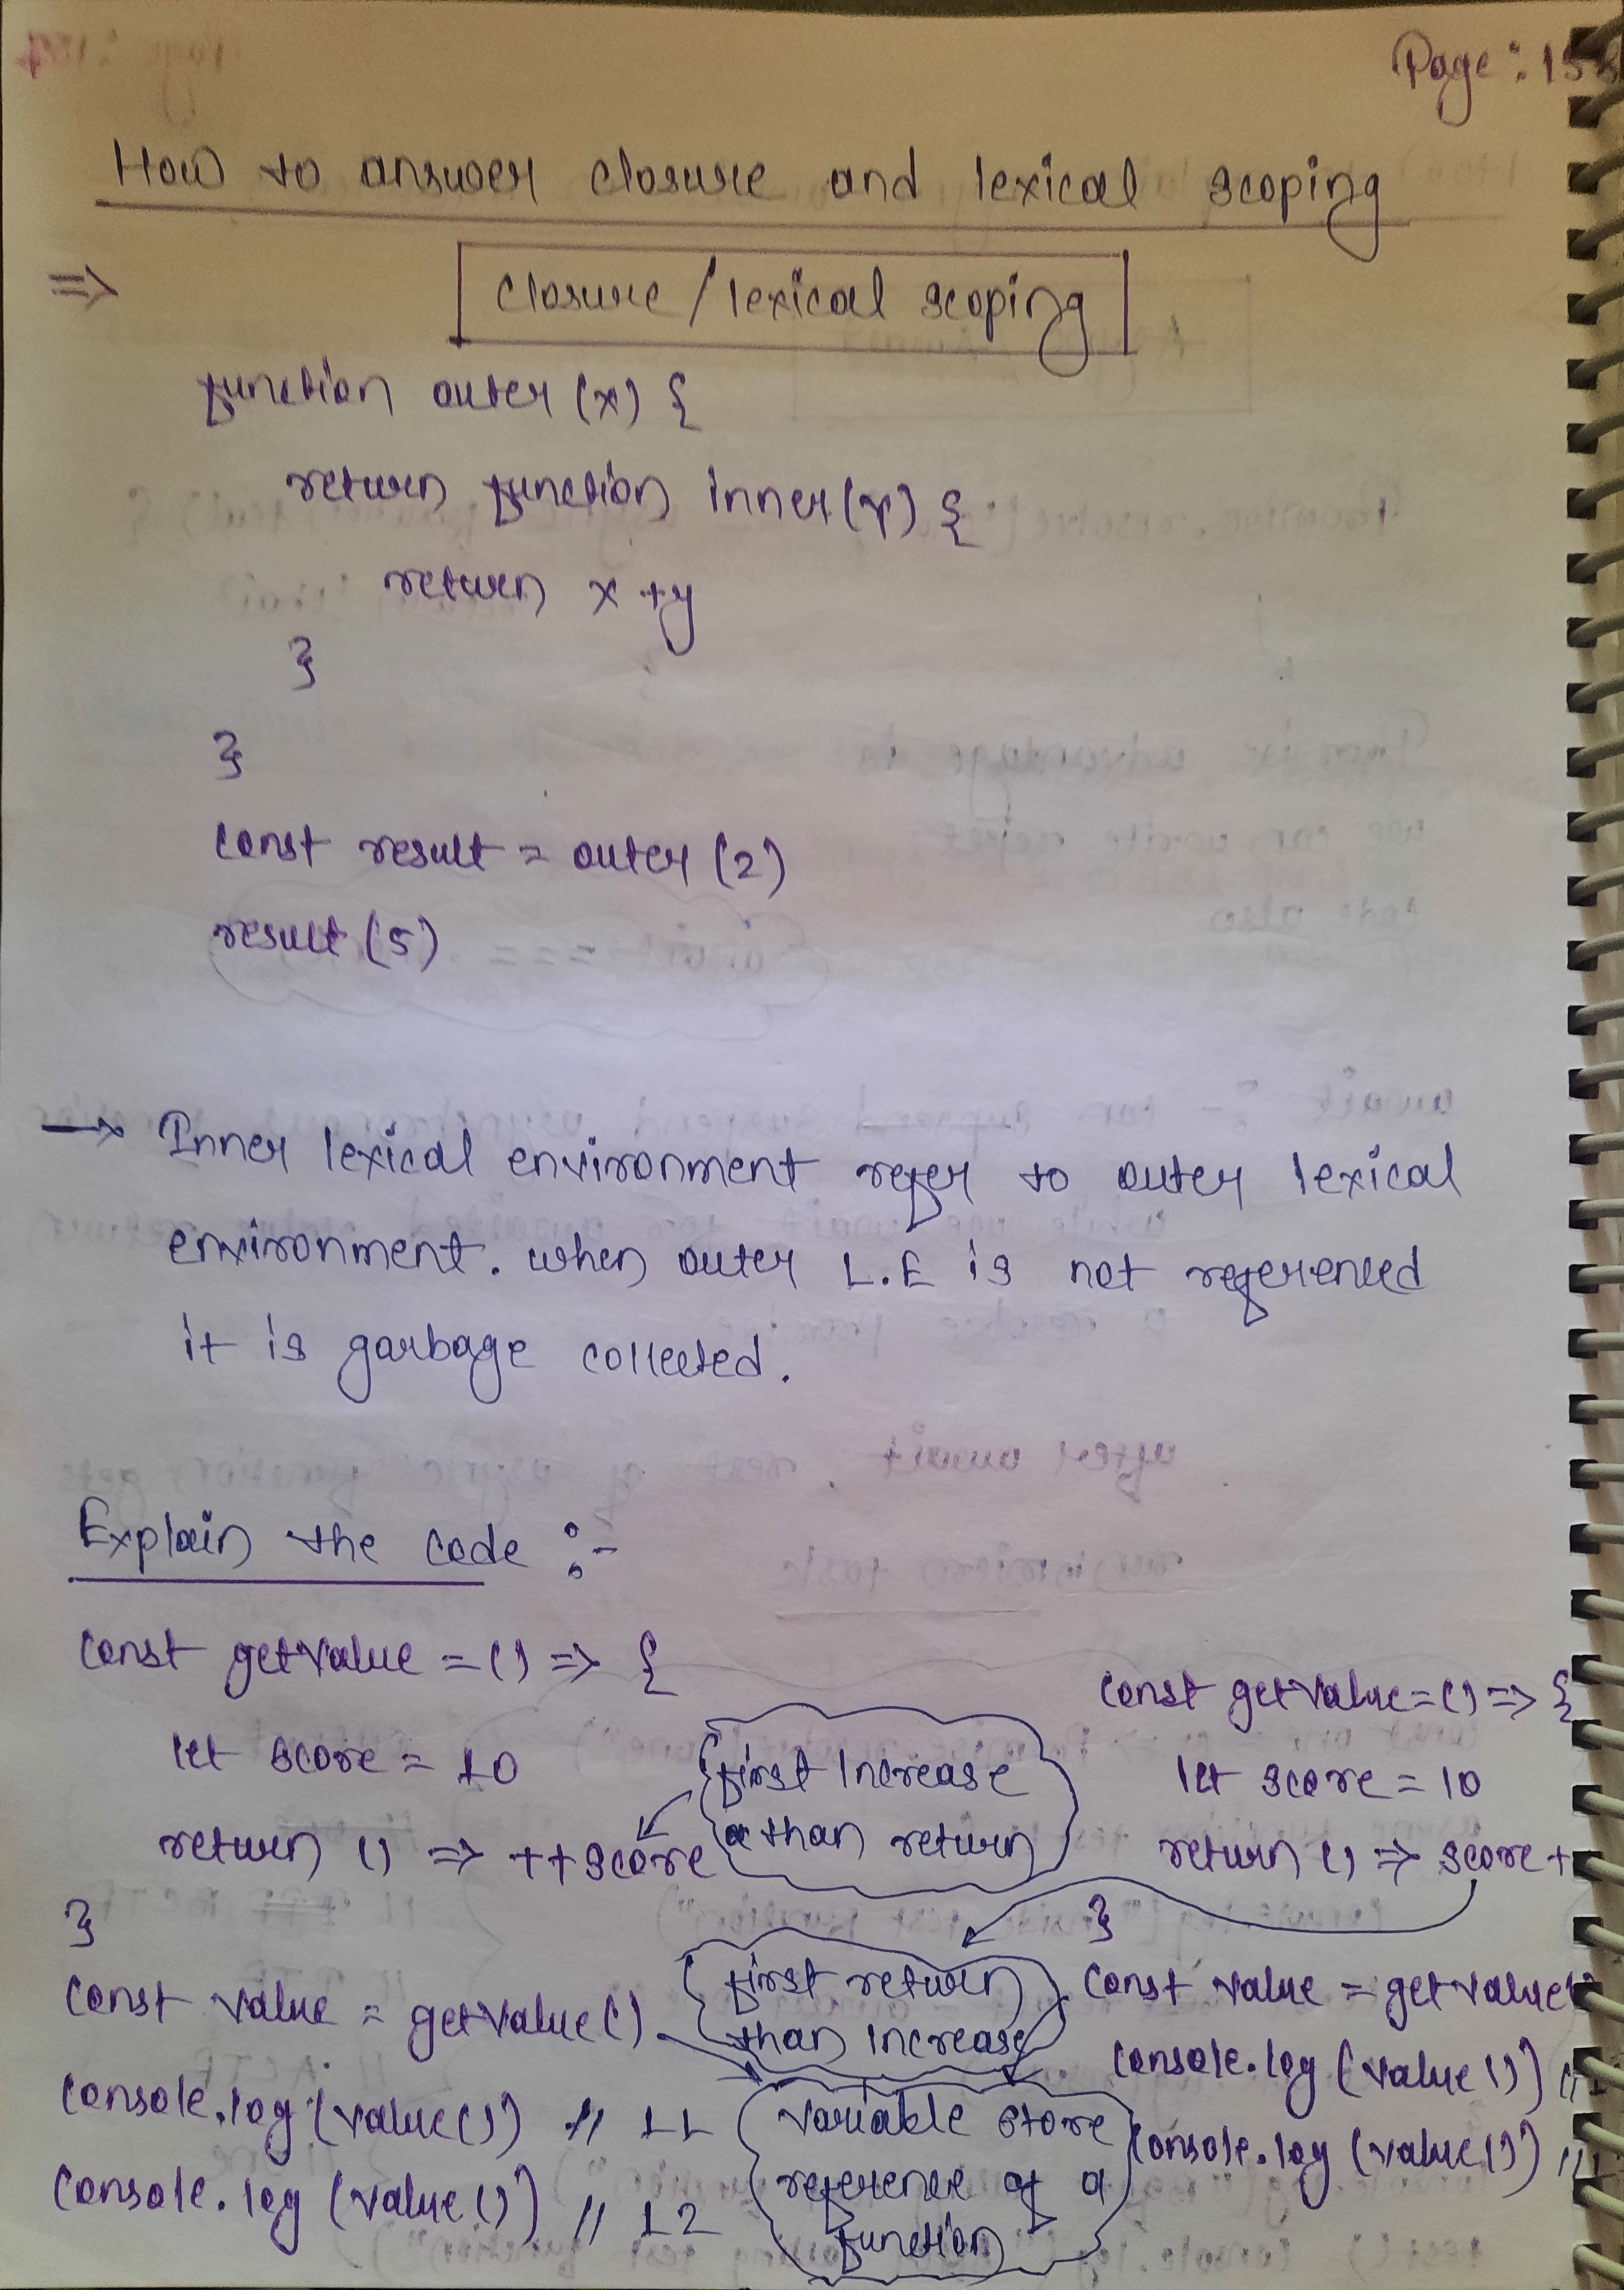 Page: 15
How to answer closure and lexical scoping
=> closure / lexical scoping
function outer (x) {
return function inner (y) {
return x + y
}
}
const result = outer (2)
result (5)
→ Inner lexical environment refer to outer lexical
environment. when outer L.E is not referenced
it is garbage collected.
Explain the code :-
const getValue = () => {
let score = 10
return () => ++score
}
const value = getValue()
console.log (value()) // 11
console.log (value()) // 12
first Increase
than return
first return
than increase
variable store
reference of a
function
const getValue = () => {
let score = 10
return () => score+
}
const value = getValue
console.log (value())
console.log (value()) //